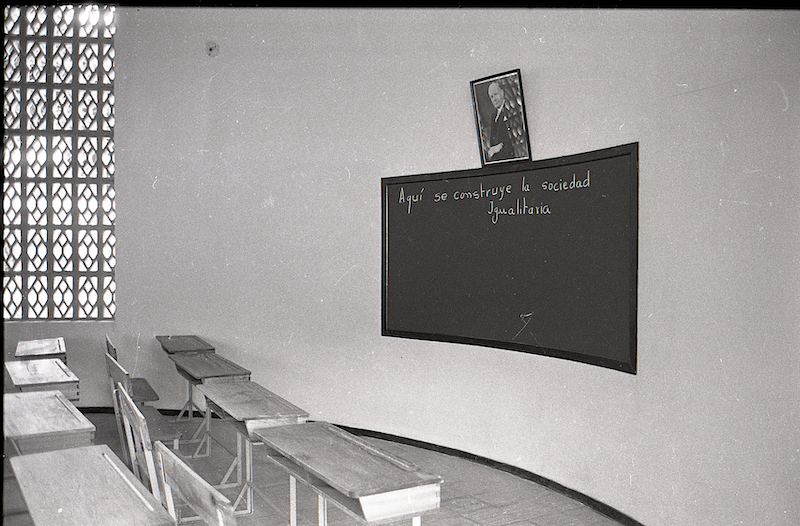 Aquí se construye la sociedad
Igualitaria